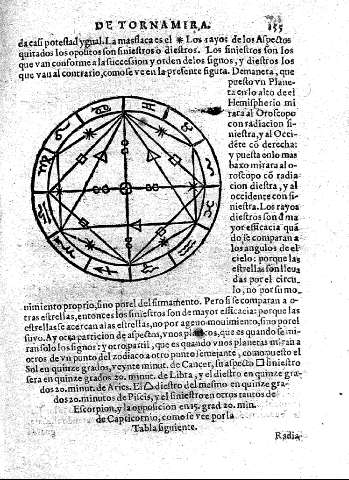 DE TORNAMIRA. 155
da casi potestad ygual. La mas flaca es el ✶ Los rayos de los Aspectos
quitados los opositos son siniestro o diestros. Los siniestros son los
que van conforme a la succession y orden delos signos, y diestros los
que van al contrario, como se ve en la presente figura. De manera, que
puesto vn Plane-
ta en lo alto de el
Hemispherio mi
rara al Oroscopo
con radiacion si-
niestra, y al Occi-
dẽte cõ derecha:
y puesta en lo mas
baxo mirara al o-
roscopo cõ radia
cion diestra, y al
occidente con si-
niestra. Los rayos
diestros son d̃ ma
yor efficacia quã
do se comparan a
los angulos de el
cielo: porque las
estrellas son lleua
das por el circu-
lo, no por su mo-
uimiento proprio, sino por el del firmamento. Pero si se comparan a o-
tras estrellas, entonces los siniestros son de mayor efficacia: porque las
estrellas se acercan a las estrellas, no por ageno mouimiento, sino por el
suyo. Ay otra particion de aspectos, vnos que es quando se mi-
ran solo los signos: y otro partil, que es quando vn planeta mira a
otros de vn punto del zodiaco a otro punto semejante, como puesto el
Sol en quinze grados, veynte minut. de Cancer, su aspecto □ siniestro
sera en quinze grados 20. minut. de Libra, y el diestro en quinze gra-
dos 20. minut. de Aries. El △ diestro del mesmo en quinze gra-
dos 20. minutos de Piscis, y el siniestro en otros tantos de
Escorpion, y la opposicion en 15. grad 20. min.
de Capricornio, como se vee por la
Tabla siguiente.
Radia-